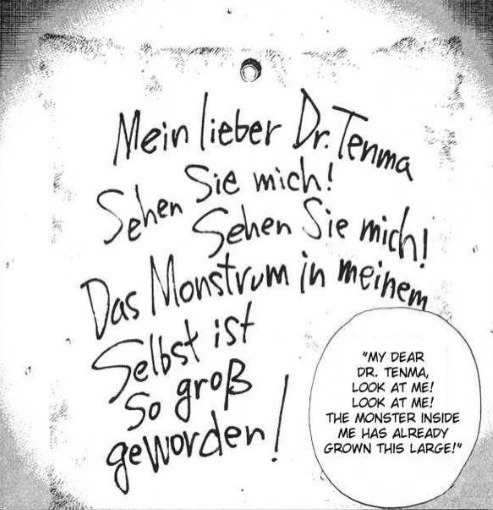 Mein lieber Dr. Tenma
Sehen Sie mich!
Sehen Sie mich!
Das Monstrum in meinem
Selbst ist
So groß
geworden!
"MY DEAR
DR. TENMA,
LOOK AT ME!
LOOK AT ME!
THE MONSTER INSIDE
ME HAS ALREADY
GROWN THIS LARGE!"